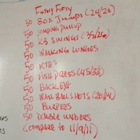 Filthy Fifty
50 Box Jumps (24/20)
50 Jumping Pullup
50 KB Swings (35/26)
50 Walking Lunges
50 KTE's
50 Push Press (45/35)
50 Back Ext
50 Wall Ball Shots (20/14)
50 Burpees
50 Double Unders
Compare to 11/9/11